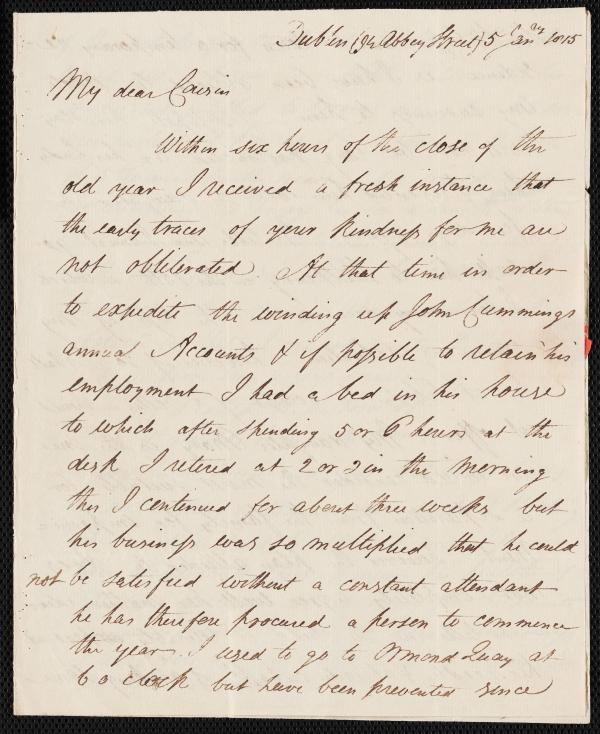 Dublin (94 Abbey Street) 5 Jany 1815
My dear Cousin
Within six hours of the close of the
old year I received a fresh instance that
the early traces of your kindness for me are
not obliterated. At that time in order
to expedite the winding up John Cummings
annual Accounts & if possible to retain his
employment I had a bed in his house
to which after spending 5 or 6 hours at the
desk I retired at 2 or 3 in the morning
this I continued for about three weeks but
his business was so multiplied that he could
not be satisfied without a constant attendant
he has therefore procured a person to commence
the year. I used to go to Ormond Quay at
6 o clock but have been prevented since